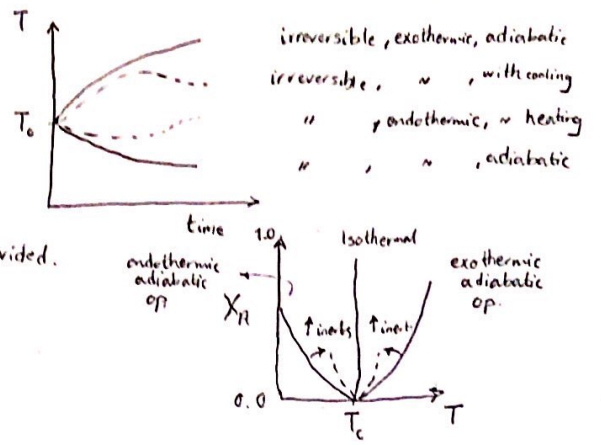 T
irreversible, exothermic, adiabatic
irreversible, ~ , with cooling
T₀
" , endothermic, ~ heating
" , ~ , adiabatic
time
vided.
1.0
Isothermal
endothermic
adiabatic
op.
exothermic
adiabatic
op.
X_A
↑inerts
↑inert.
0.0
T_c
T